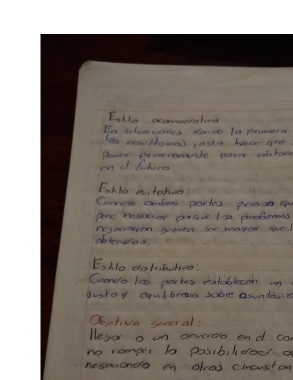 Estilo acomodativo
En situaciones donde la primera
los resultados, esta hace que
para
en el futuro
Estilo evitativo:
Cuando ambas partes piensan que
negociar porque los problemas
negociación pueden ser mayor que l
obtenerse.
Estilo distributivo:
Cuando las partes establecen un
justo y equilibrado sobre asuntos
Objetivo general:
llegar a un acuerdo en el con
no romper la posibilidad
negociando en otras circunstan